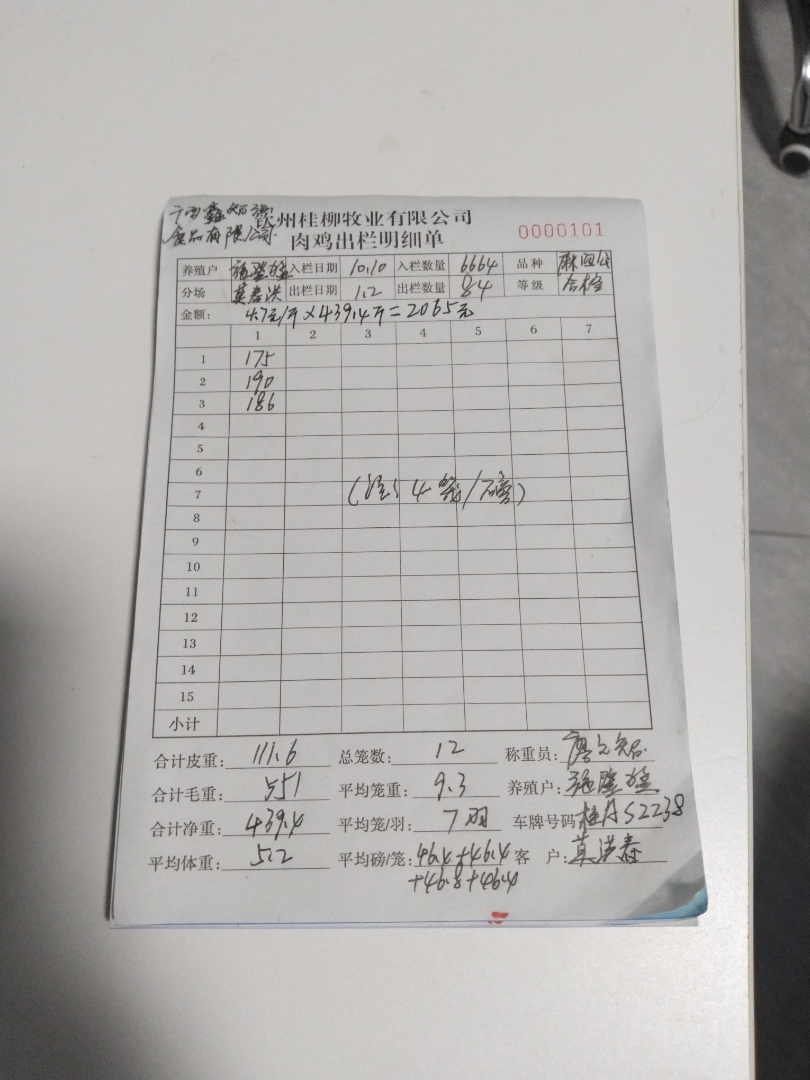 广西鑫知强
食品有限公司
钦州桂柳牧业有限公司
肉鸡出栏明细单 0000101
养殖户 入栏日期 10.10 入栏数量 6664 品种
分场 莫春洪 出栏日期 1.2 出栏数量 84 等级 合格
金额: 4.7元/斤×439.4斤=2065元
1 2 3 4 5 6 7
1 175
2 190
3 186
4
5
6
7 (注: 4笼/磅)
8
9
10
11
12
13
14
15
小计
合计皮重: 111.6 总笼数: 12 称重员:
合计毛重: 551 平均笼重: 9.3 养殖户:
合计净重: 439.4 平均笼/羽: 7羽 车牌号码: 桂AS2238
平均体重: 5.2 平均磅/笼: 46.4+46.4 客 户: 莫洪春
+46.8+46.4